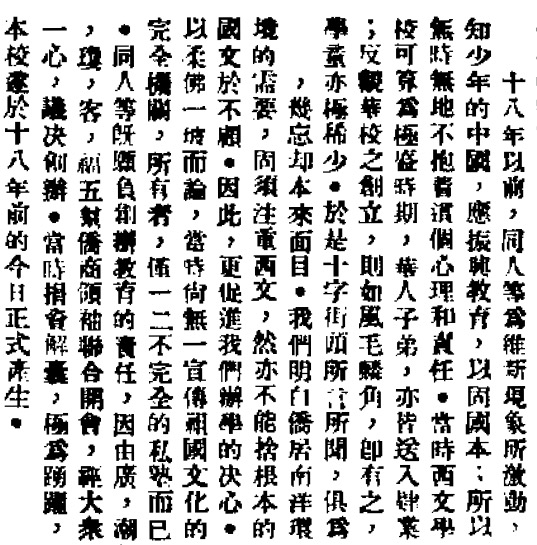 十八年以前，同人等爲維新現象所激動，
知少年的中國，應振興教育，以固國本；所以
無時無地不抱着這個心理和責任。當時西文學
校可算爲極盛時期，華人子弟，亦皆送入肄業
；反觀華校之創立，則如鳳毛麟角，卽有之，
學童亦極稀少。於是十字街頭所言所聞，俱爲
，幾忘却本來面目。我們明白僑居南洋環
境的需要，固須注重西文，然亦不能捨根本的
國文於不顧。因此，更促進我們辦學的决心。
以柔佛一坡而論，當時尙無一宣傳祖國文化的
完全機關，所有者，僅一二不完全的私塾而已
。同人等旣願負創辦教育的責任，因由廣，潮
，瓊，客，福五幫僑商領袖聯合開會，大衆
一心，議决創辦。當時捐資解囊，極爲踴躍，
本校遂於十八年前的今日正式產生。